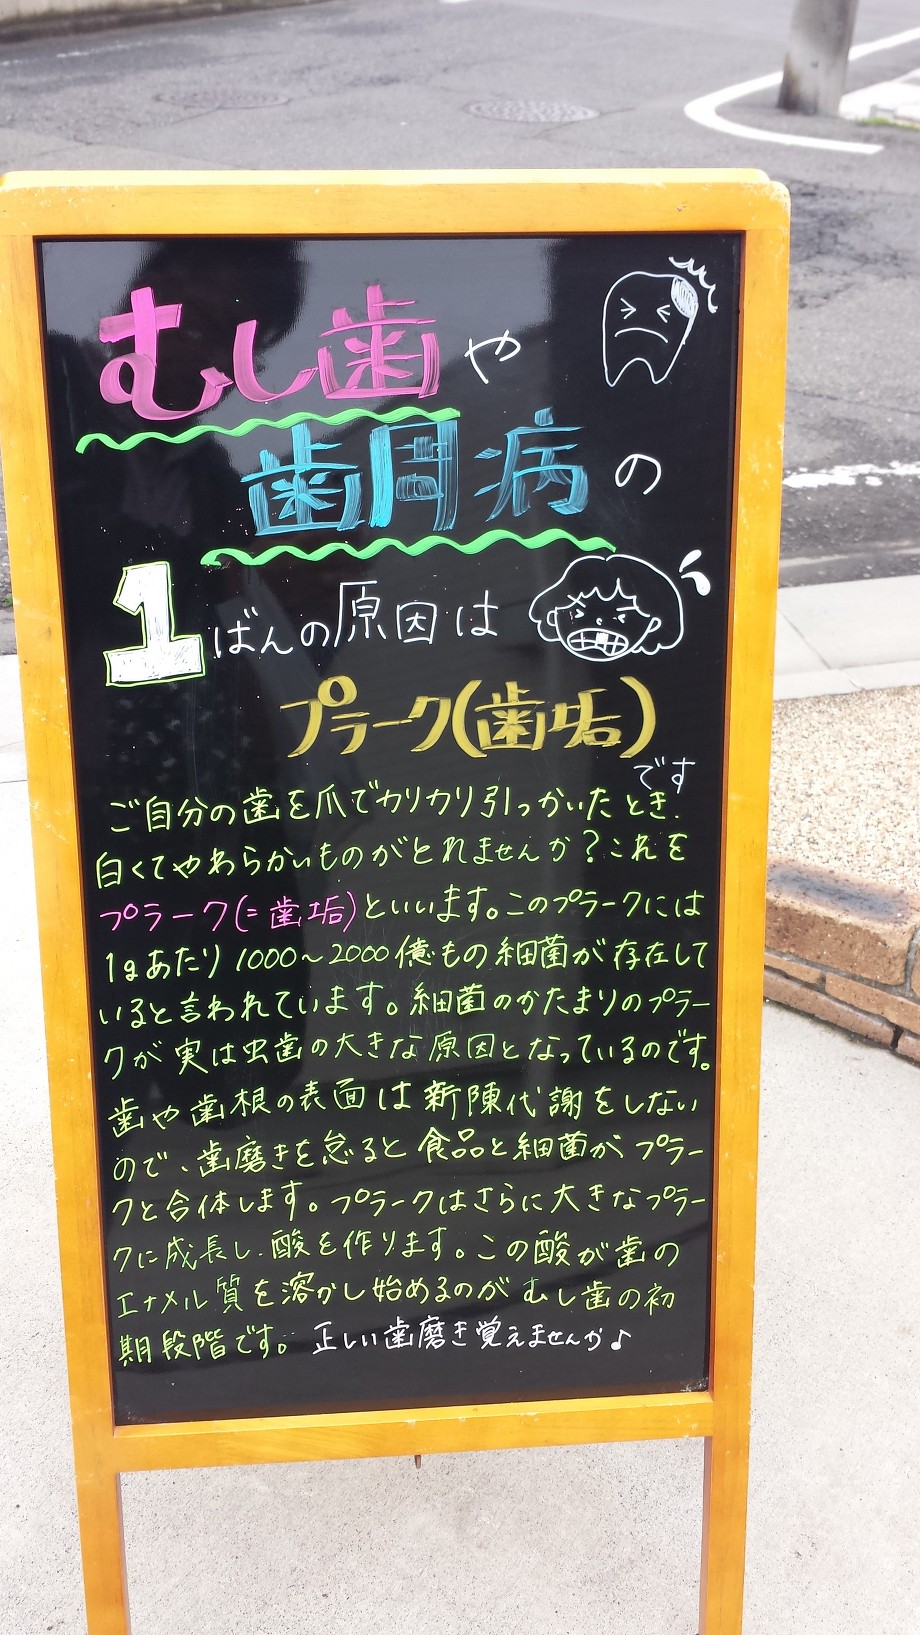 むし歯や
歯周病の
1ばんの原因は
プラーク(歯垢)
です
ご自分の歯を爪でカリカリ引っかいたとき、
白くてやわらかいものがとれませんか?これを
プラーク(=歯垢)といいます。このプラークには
1gあたり1000~2000億もの細菌が存在して
いると言われています。細菌のかたまりのプラー
クが実は虫歯の大きな原因となっているのです。
歯や歯根の表面は新陳代謝をしない
ので、歯磨きを怠ると食品と細菌がプラー
クと合体します。プラークはさらに大きなプラー
クに成長し、酸を作ります。この酸が歯の
エナメル質を溶かし始めるのがむし歯の初
期段階です。正しい歯磨き覚えませんか♪